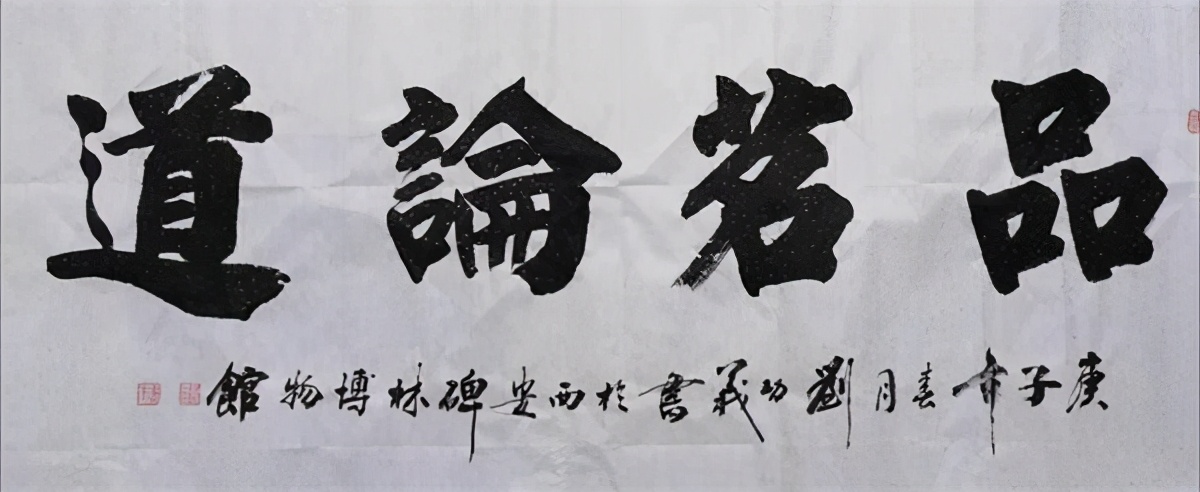 品茗論道
庚子年春月劉功義書於西安碑林博物館